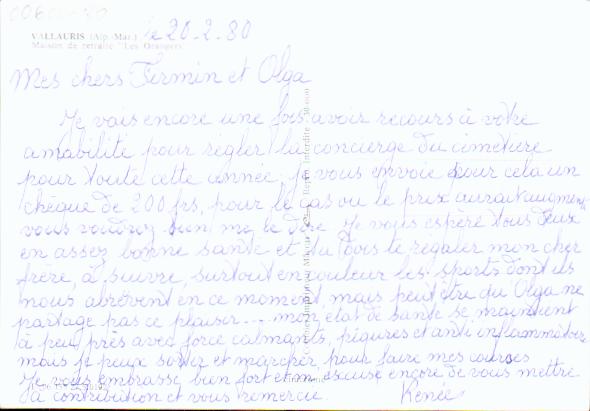 VALLAURIS (Alp.-Mar.) le 20-2-80
Maison de retraite "Les Orangers"
Mes chers Firmin et Olga
Je vais encore une fois avoir recours à votre
amabilité pour régler la concierge du cimetière
pour toute cette année, je vous envoie pour cela un
chèque de 200 frs, pour le cas ou le prix aurait augmenté
vous voudrez bien me le dire. Je vous espère tous deux
en assez bonne santé et tu dois te régaler mon cher
frère, à suivre, surtout en couleur les sports dont ils
nous abrèvent en ce moment, mais peut être qu Olga ne
partage pas ce plaisir... mon état de santé se maintient
à peu près avec force calmants, piqures et anti inflammatoires
mais je peux sortir et marcher, pour faire mes courses
Je vous embrasse bien fort et m'excuse encore de vous mettre
à contribution et vous remercie. Renée